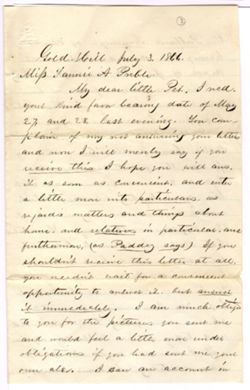 ③
Gold Hill July 3. 1866.
Miss Fannie A Preble
My dear little Pet. I recd
your kind favor bearing date of May
27, and 28 last evening. You com-
plain of my not answering your letter
and now I will merely say if you
receive this I hope you will ans.
it as soon as convenient, and enter
a little more into particulars, as
regards matters and things about
home, and relatives in particular. and
furthermore, (as Paddy says) If you
shouldn't receive this letter at all,
you needn't wait for a convenient
opportunity to answer it, but answer
it immediately. I am much oblige
to you for the picture you sent me
and would feel a little more under
obligations if you had sent me your
own also. I saw an account in